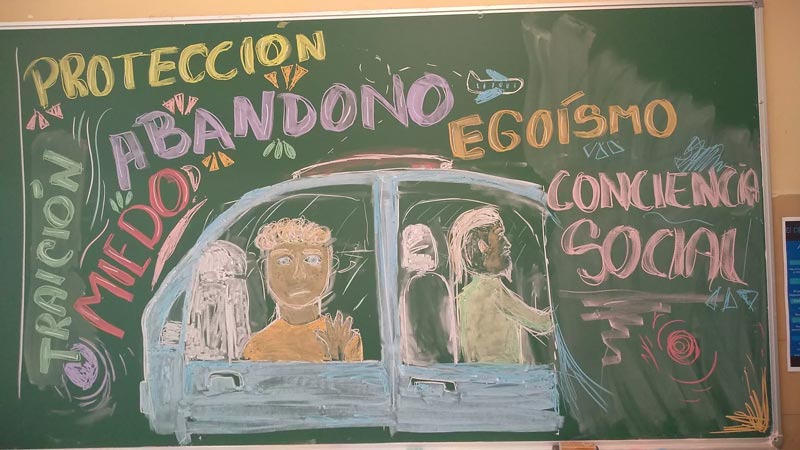 PROTECCIÓN
ABANDONO
EGOÍSMO
TRAICIÓN
MIEDO
CONCIENCIA
SOCIAL